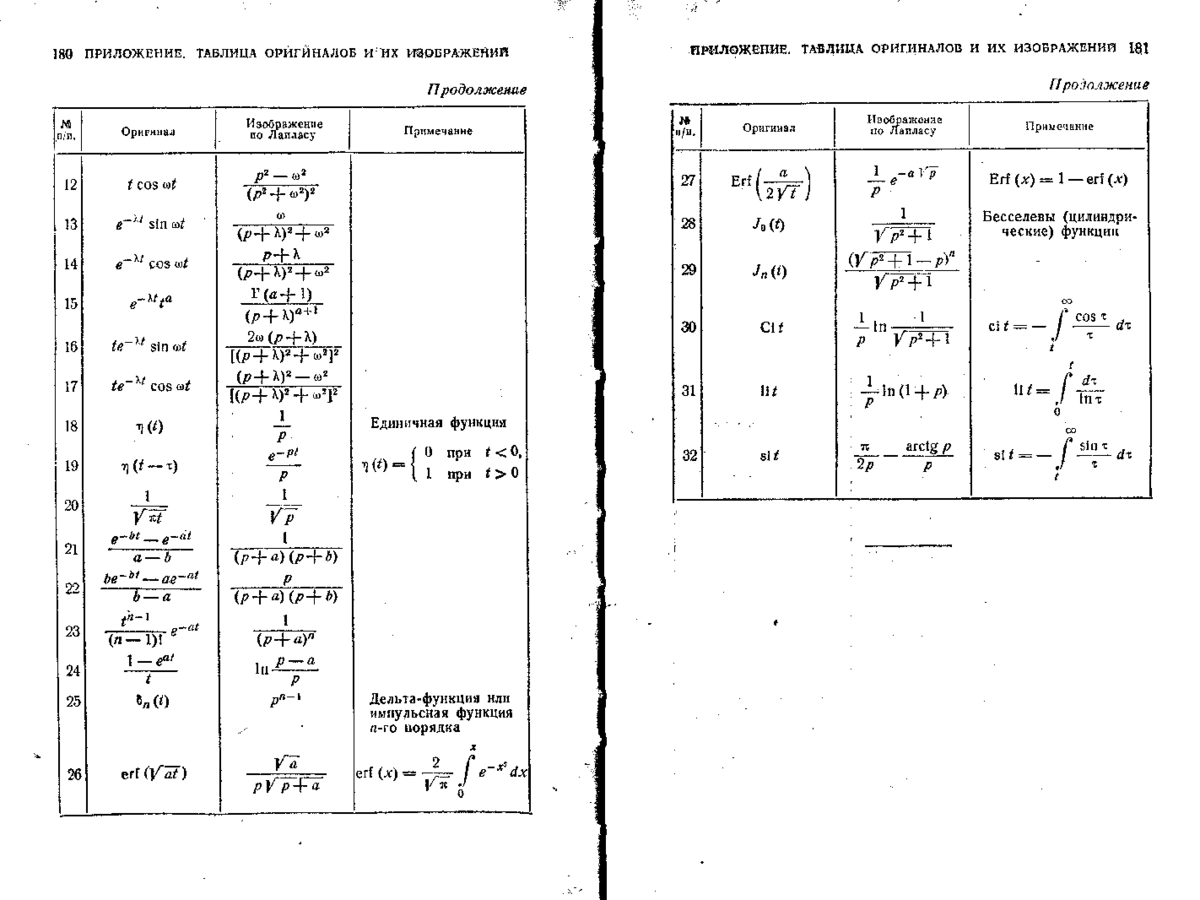 180 ПРИЛОЖЕНИЕ. ТАБЛИЦА ОРИГИНАЛОВ И ИХ ИЗОБРАЖЕНИЙ
Продолжение
№ п/п. | Оригинал | Изображение по Лапласу | Примечание
12 | t cos ωt | (p² — ω²) / (p² + ω²)²
13 | e^(−λt) sin ωt | ω / ((p + λ)² + ω²)
14 | e^(−λt) cos ωt | (p + λ) / ((p + λ)² + ω²)
15 | e^(−λt) t^a | Γ (a + 1) / (p + λ)^(a+1)
16 | te^(−λt) sin ωt | 2ω (p + λ) / [(p + λ)² + ω²]²
17 | te^(−λt) cos ωt | ((p + λ)² — ω²) / [(p + λ)² + ω²]²
18 | η (t) | 1 / p | Единичная функция
19 | η (t — τ) | e^(−pτ) / p | η (t) = { 0 при t < 0, 1 при t > 0
20 | 1 / √(πt) | 1 / √p
21 | (e^(−bt) — e^(−at)) / (a — b) | 1 / ((p + a) (p + b))
22 | (be^(−bt) — ae^(−at)) / (b — a) | p / ((p + a) (p + b))
23 | t^(n−1) / (n — 1)! e^(−at) | 1 / (p + a)^n
24 | (1 — e^(at)) / t | ln (p — a) / p
25 | δₙ (t) | p^(n−1) | Дельта-функция или
импульсная функция
n-го порядка
26 | erf (√(at)) | √a / (p √(p + a)) | erf (x) = 2 / √π ∫₀ˣ e^(−x²) dx
ПРИЛОЖЕНИЕ. ТАБЛИЦА ОРИГИНАЛОВ И ИХ ИЗОБРАЖЕНИЙ 181
Продолжение
№ п/п. | Оригинал | Изображение по Лапласу | Примечание
27 | Erf (a / (2√t)) | 1/p e^(−a√p) | Erf (x) = 1 — erf (x)
28 | J₀ (t) | 1 / √(p² + 1) | Бесселевы (цилиндри-
ческие) функции
29 | Jₙ (t) | (√(p² + 1) — p)ⁿ / √(p² + 1)
30 | Ci t | 1/p ln 1 / √(p² + 1) | ci t = — ∫ₜ^∞ cos τ / τ dτ
31 | li t | 1/p ln (1 + p) | li t = ∫₀ᵗ dτ / ln τ
32 | si t | π / 2p — arctg p / p | si t = — ∫ₜ^∞ sin τ / τ dτ